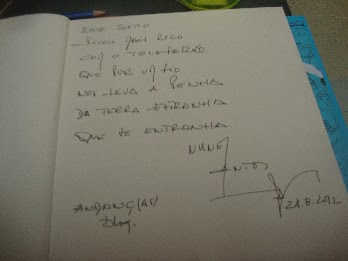 ESTE SÍTIO
FICOU MAIS RICO
COM O TELEFÉRICO
QUE POR UM FIO
NOS LEVA À PENHA
DA TERRA ESTRANHA
QUE SE ENTRANHA.
NUNO
SANTOS
ANDANÇAS
blog.
24.8.2012